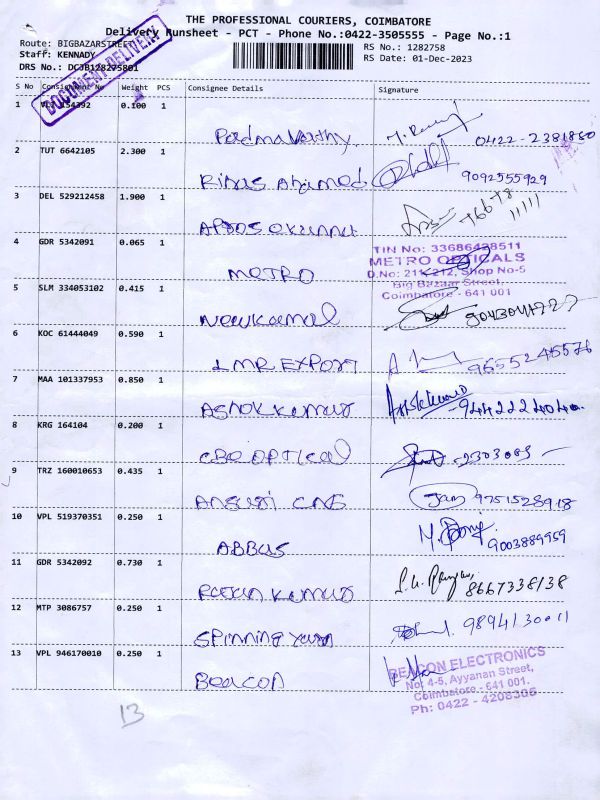 THE PROFESSIONAL COURIERS, COIMBATORE
Delivery Runsheet - PCT - Phone No.:0422-3505555 - Page No.:1
Route: BIGBAZARSTREET
RS No.: 1282758
Staff: KENNADY
RS Date: 01-Dec-2023
DRS No.: DCJB128275801
DOCUMENT DELIVERY
S No Consignment No Weight PCS Consignee Details Signature
1 VLI 154392 0.100 1 Padmavathy 0422-2381880
2 TUT 6642105 2.300 1 Riyas Ahamed 9092555929
3 DEL 529212458 1.900 1 76678 11111
4 GDR 5342091 0.065 1 METRO
TIN No: 33686438511
METRO OPTICALS
D.No: 211, 212, Shop No-5
Big Bazaar Street,
Coimbatore - 641 001
5 SLM 334053102 0.415 1 Newkamal
6 KOC 61444049 0.590 1 LMR EXPORT 9655245576
7 MAA 101337953 0.850 1 ASHOK KUMUR 9442224040
8 KRG 164104 0.200 1 OPTICAL 2303083
9 TRZ 160010653 0.435 1 9751528918
10 VPL 519370351 0.250 1 ABBUS 9003889959
11 GDR 5342092 0.730 1 KUMUR 8667338138
12 MTP 3086757 0.250 1 SPINNING YARN 9894130011
13 VPL 946170010 0.250 1 BEACON
BEACON ELECTRONICS
No: 4-5, Ayyanan Street,
Coimbatore - 641 001.
Ph: 0422 - 4208306
13